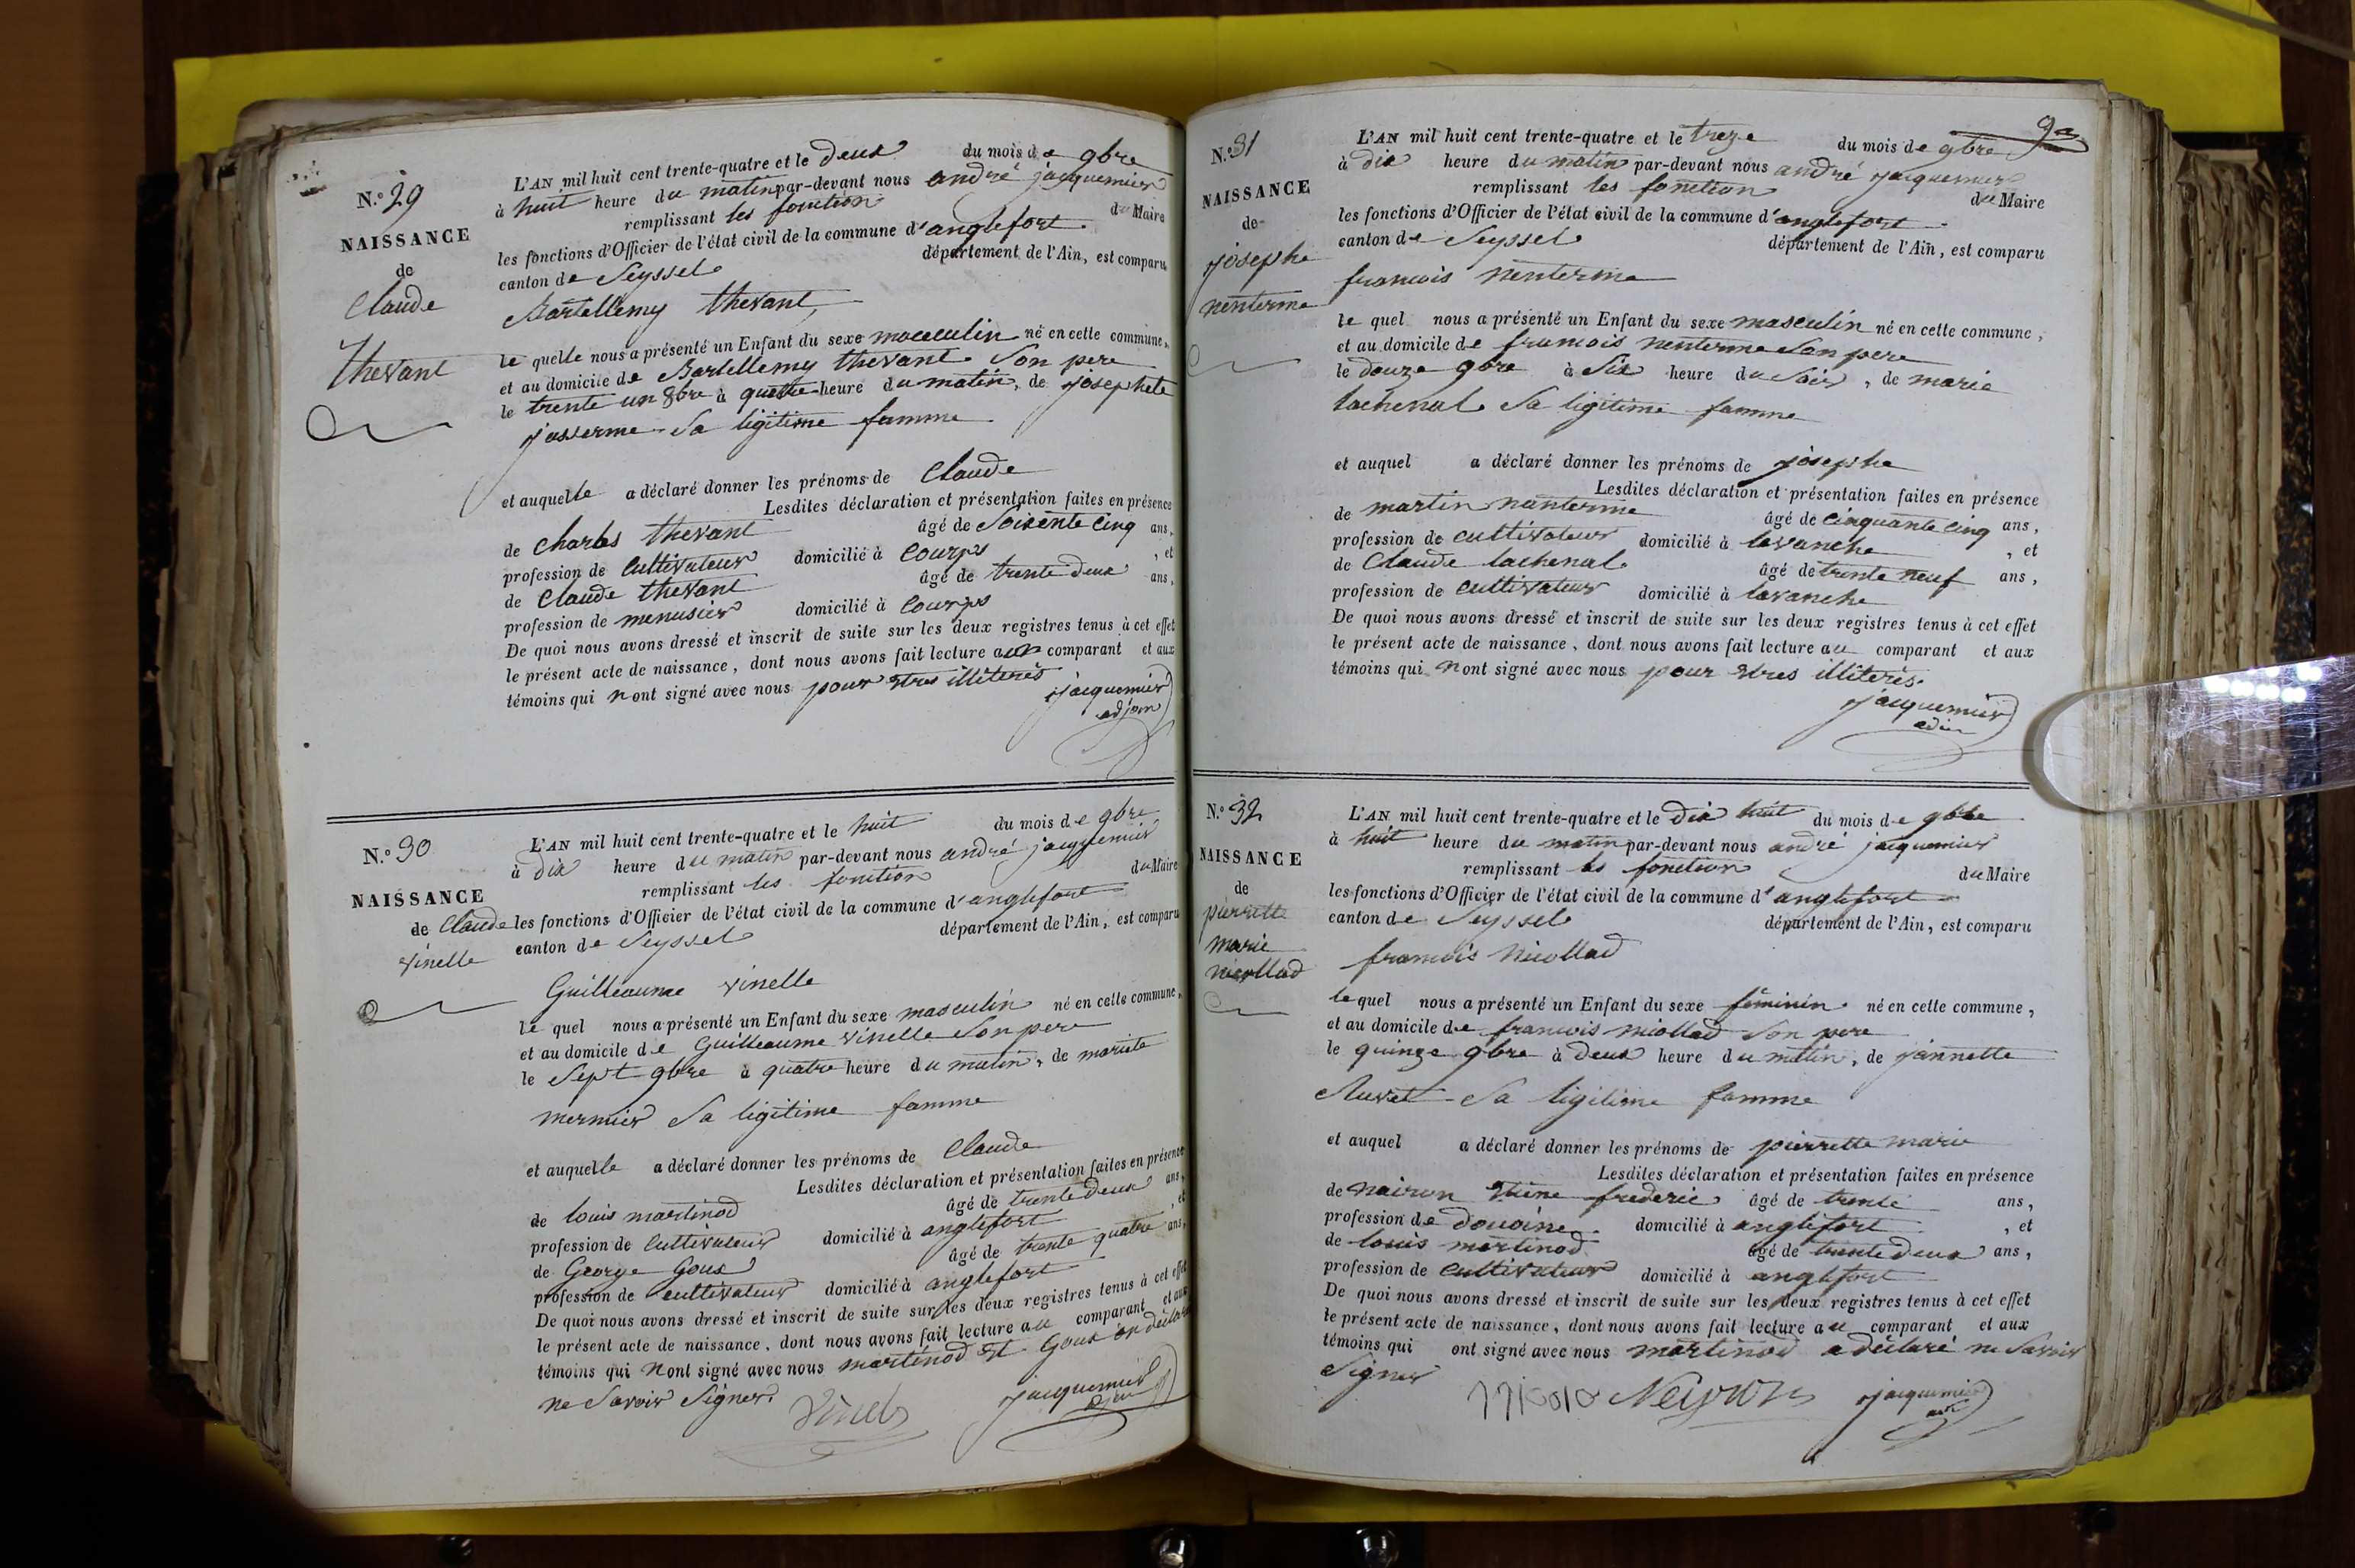 N.° 29
NAISSANCE
de
Claude
thevant
L'AN mil huit cent trente-quatre et le deux du mois de 9bre
à huit heure du matin par-devant nous andré jacquemier
remplissant les fonction du Maire
les fonctions d'Officier de l'état civil de la commune d'anglefort
canton de Seyssel département de l'Ain, est comparu
Bartellemy thevant
le quelle nous a présenté un Enfant du sexe masculin né en cette commune,
et au domicile de Bartellemy thevant Son pere
le trente un 8bre à quatre heure du matin, de josephete
josserme Sa ligitime famme
et auquelle a déclaré donner les prénoms de Claude
Lesdites déclaration et présentation faites en présence
de Charles thevant âgé de Soixente cinq ans,
profession de Cultivateur domicilié à Courps , et
de Claude thevant âgé de trente deux ans,
profession de menusier domicilié à Courps
De quoi nous avons dressé et inscrit de suite sur les deux registres tenus à cet effet
le présent acte de naissance, dont nous avons fait lecture au comparant et aux
témoins qui nont signé avec nous pour etres illiterés
jacquemier
adjoin
N.° 30
NAISSANCE
de Claude
vinelle
L'AN mil huit cent trente-quatre et le huit du mois de 9bre
à dix heure du matin par-devant nous andré jacquemier
remplissant les fonction du Maire
les fonctions d'Officier de l'état civil de la commune d'anglefort
canton de Seyssel département de l'Ain, est comparu
Guilleaume vinelle
le quel nous a présenté un Enfant du sexe masculin né en cette commune,
et au domicile de Guilleaume vinelle Son pere
le Sept 9bre à quatre heure du matin, de mariete
mermier Sa ligitime famme
et auquelle a déclaré donner les prénoms de Claude
Lesdites déclaration et présentation faites en présence
de louis martinod âgé de trente deux ans,
profession de Cultivateur domicilié à anglefort , et
de George Goux âgé de trente quatre ans,
profession de cultivateur domicilié à anglefort
De quoi nous avons dressé et inscrit de suite sur les deux registres tenus à cet effet
le présent acte de naissance, dont nous avons fait lecture au comparant et aux
témoins qui nont signé avec nous martinod et Goux on déclaré
ne Savoir Signer
Vinel jacquemier
92
N.° 31
NAISSANCE
de
josephe
nenterme
L'AN mil huit cent trente-quatre et le treze du mois de 9bre
à dix heure du matin par-devant nous andré jacquemier
remplissant les fonction du Maire
les fonctions d'Officier de l'état civil de la commune d'anglefort
canton de Seyssel département de l'Ain, est comparu
francois nenterme
le quel nous a présenté un Enfant du sexe masculin né en cette commune,
et au domicile de francois nenterme Son pere
le douze 9bre à Six heure du Soir, de marie
lachenal Sa ligitime famme
et auquel a déclaré donner les prénoms de josephe
Lesdites déclaration et présentation faites en présence
de martin nanterme âgé de cinquante cinq ans,
profession de cultivateur domicilié à lavanche , et
de Claude lachenal âgé de trente neuf ans,
profession de cultivateur domicilié à lavanche
De quoi nous avons dressé et inscrit de suite sur les deux registres tenus à cet effet
le présent acte de naissance, dont nous avons fait lecture au comparant et aux
témoins qui nont signé avec nous pour etres illiterés
jacquemier
N.° 32
NAISSANCE
de
pierrette
marie
L'AN mil huit cent trente-quatre et le dix huit du mois de 9bre
à huit heure du matin par-devant nous andré jacquemier
remplissant les fonction du Maire
les fonctions d'Officier de l'état civil de la commune d'anglefort
canton de Seyssel département de l'Ain, est comparu
francois niollad
le quel nous a présenté un Enfant du sexe féminin né en cette commune,
et au domicile de francois niollad Son pere
le quinze 9bre à deux heure du matin, de jannette
Sa ligitime famme
et auquel a déclaré donner les prénoms de pierrette marie
Lesdites déclaration et présentation faites en présence
de nairon frederic âgé de trente ans,
profession de douaine domicilié à anglefort , et
de louis martinod âgé de trente deux ans,
profession de cultivateur domicilié à anglefort
De quoi nous avons dressé et inscrit de suite sur les deux registres tenus à cet effet
le présent acte de naissance, dont nous avons fait lecture au comparant et aux
témoins qui ont signé avec nous martinod a déclaré ne Savoir
Signer
Neyron jacquemier